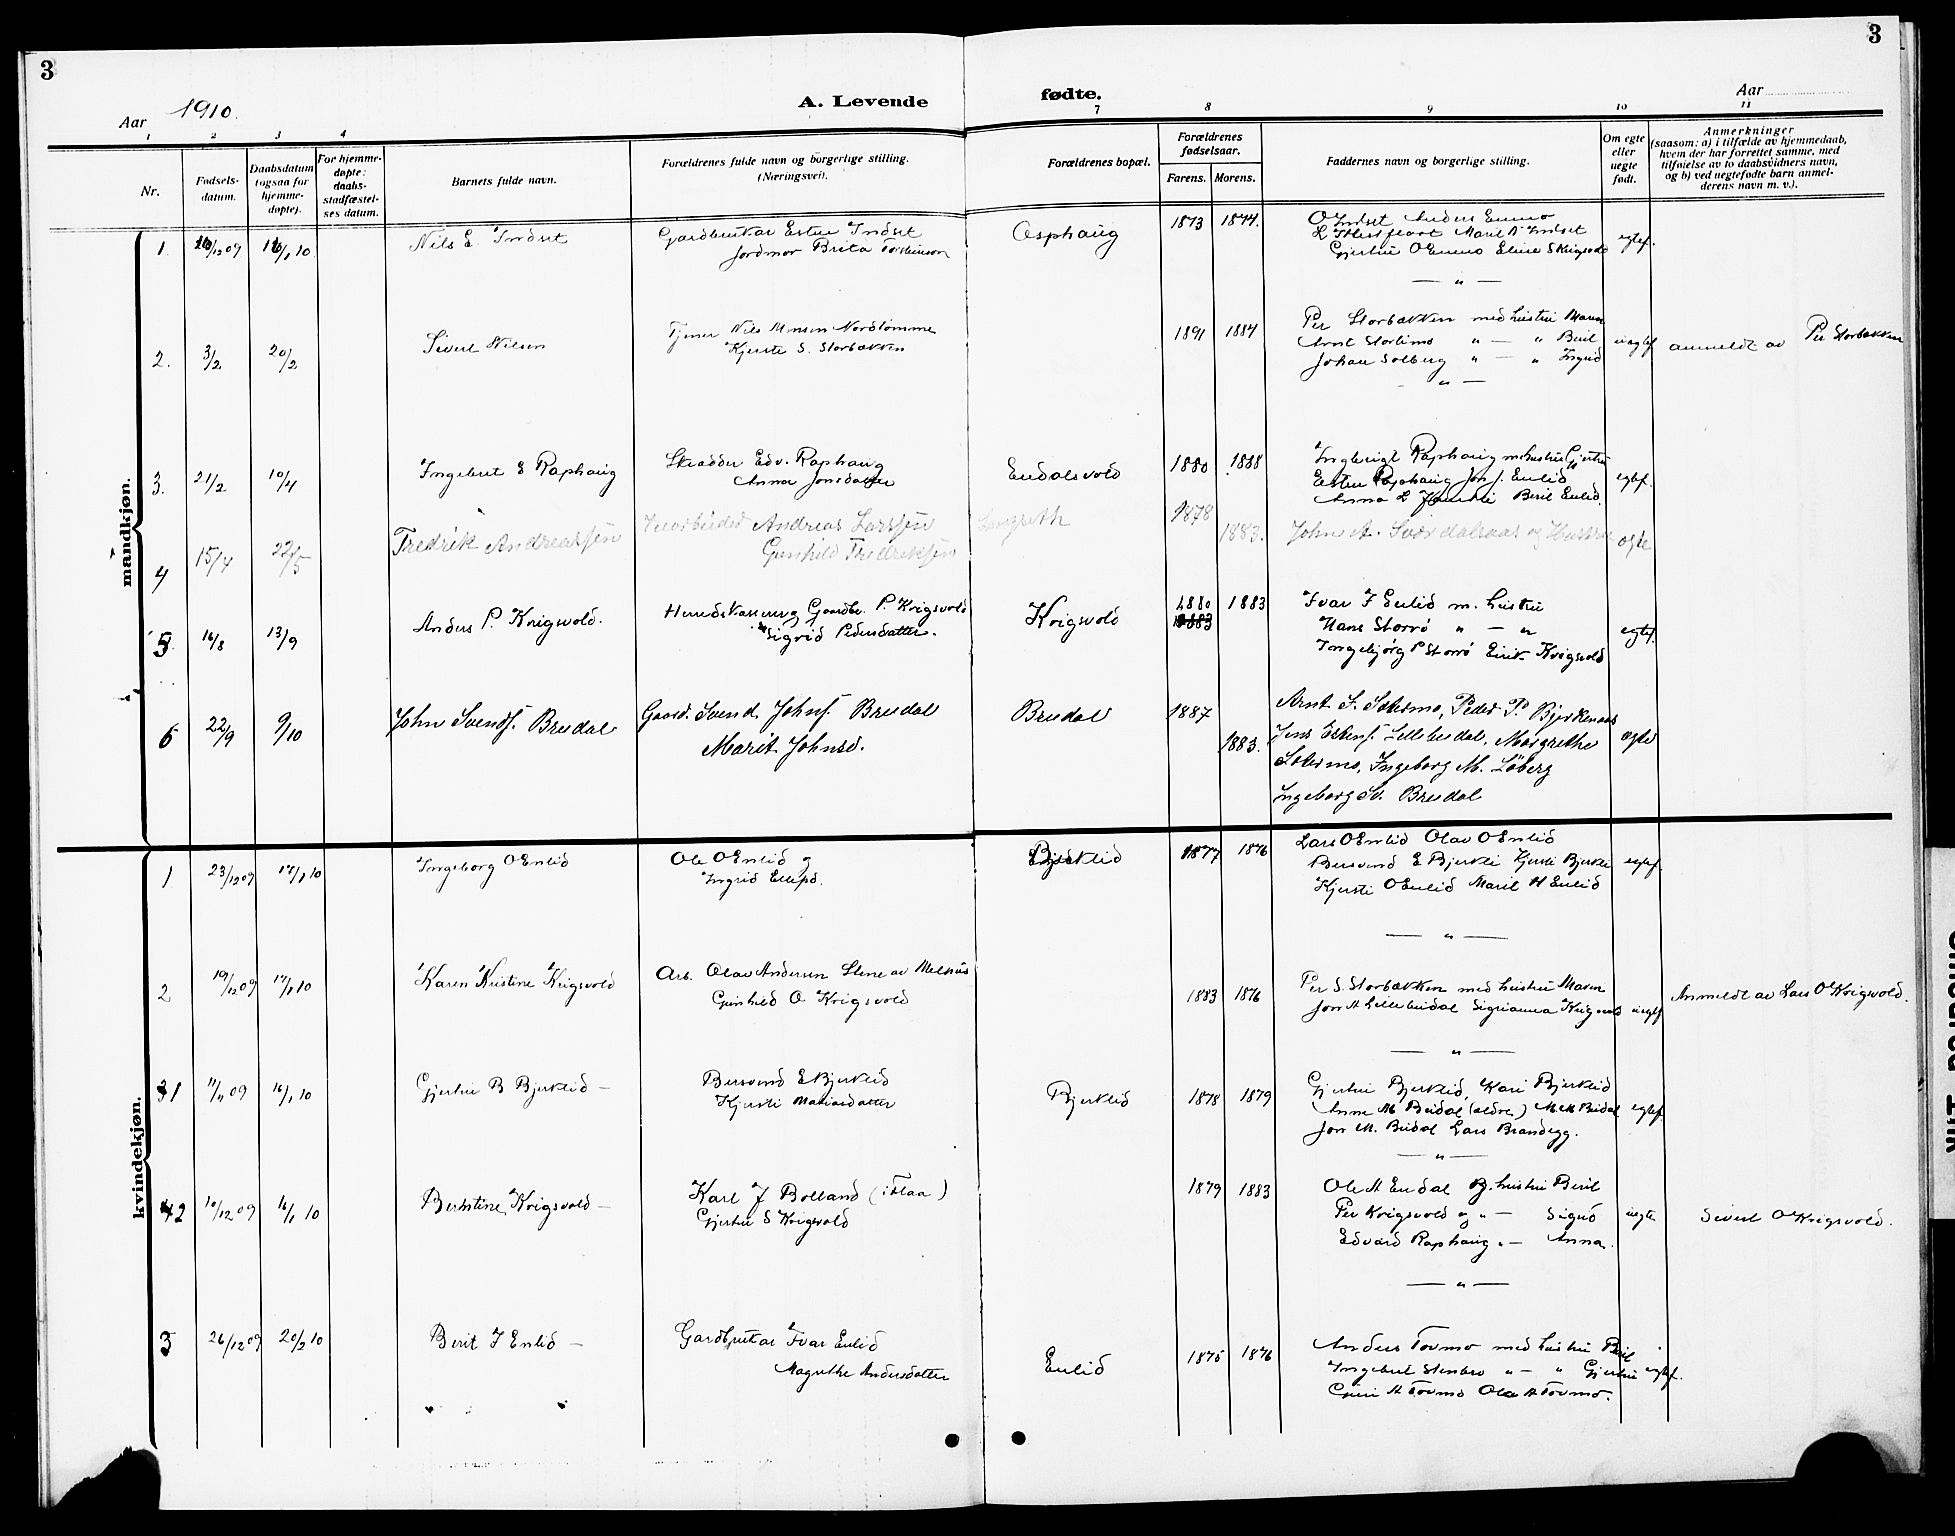 3
3
Aar 1910.
A. Levende fødte.
Aar
1 2 3 4 7 8 9 10 11
Nr.
Fødsels-
datum.
Daabsdatum
(ogsaa for
hjemme-
døpte).
For hjemme-
døpte:
daabs-
stadfæstel-
ses datum.
Barnets fulde navn.
Forældrenes fulde navn og borgerlige stilling.
(Næringsvei).
Forældrenes bopæl.
Forældrenes
fødselsaar.
Farens. Morens.
Faddernes navn og borgerlige stilling.
Om egte
eller
uegte
født.
Anmerkninger
(saasom: a) i tilfælde av hjemmedaab,
hvem der har forrettet samme, med
tilføielse av to daabsvidners navn,
og b) ved uegtefødte barn anmel-
derens navn m. v.).
mandkjøn.
1. /12 09 16/1 10 Nils E. Indset
Gardbrukar Esten Indset
Jordmor Brita Torsteinson
Osphaug 1873 1874.
O Indset Anders Enmo
Marit N Indset
Gjertru O Enmo Eline S Krigsvold
egtef.
— " —
2. 3/2 20/2 Sivert Nilsen
Tjener Nils Monsen Nordtømme
Kjersti S. Storbækken
1891 1884
Per Storbækken med hustru Maren
Arnt Storlimo " — " Berit
Johan Solberg " — " Ingrid
— " —
uegtef anmeldt av Per Storbækken
3. 21/2 10/4 Ingebrit E Raphaug
Skrædder Edv. Raphaug
Anna Jonsdatter
Endalsvold 1880 1888
Ingbrigt Raphaug m hustru Gjertru
Esten Raphaug Jon J. Enlid
Anna L Berit Enlid.
egtef.
4 15/4 22/5 Fredrik Andreassen
Andreas Larssen
Gunhild Fredriksen
Langseth 1878 1883.
John A. Sværdalsaas og Hustru
egte
5 16/8 13/9 Anders P. Krigsvold.
Heredskasserer og Gaardbr. P. Krigsvold
Sigrid Pedersdatter.
Krigsvold 1880 1883 1883
Ivar J Enlid m. hustru
Hans Storrø " — "
Ingebjørg P Storrø Eirik Krigsvold
egtef.
6 22/9 9/10 John Svends. Bredal
Gaard. Svend Johns. Bredal
Marit Johnsd.
Bredal 1887 1883.
Arnt S. Solermo, Peder P. Bjerkenaas
Jens Estens. Lillebudal, Margrethe
Solermo, Ingeborg M. Löberg
Ingeborg Sv. Bredal
egte
kvindekjøn.
1 23/12 09 17/1 10 Ingeborg O Enlid
Ole O Enlid og
Ingrid Ellefsd.
Bjerklid 1877 1876
Lars O Enlid Olav O Enlid
Bersvend E Bjerkli Kjersti Bjerkli
Kjersti O Enlid Marit H Enlid
egtef.
— " —
2 19/12 09 17/1 10 Karen Kristine Krigsvold
Arb. Olav Andersen Stene av Melhus
Gunhild O Krigsvold
1883 1876
Per S Storbækken med hustru Maren
Jon H Lillebudal Sigrianna Krigsvold
uegtef Anmeldt av Lars O Krigsvold.
— " —
31 11/11 09 16/1 10 Gjertru B Bjerklid —
Bersvend E Bjerklid
Kjersti Mariasdatter
Bjerklid 1878 1879
Gjertru Bjerklid, Kari Bjerklid
Anne M Budal (ældre) M M Budal
Jon M. Budal Lars Brandegg.
egtef.
— " —
42 10/12 09 16/1 10 Berntine Krigsvold —
Karl J Bolland (i Flaa)
Gjertru S Krigsvold
1879 1883
Ole A Endal og hustru Berit
Per Krigsvold og " — Sigrid
Edvard Raphaug " — Anna.
uegte Sivert O Krigsvold.
— " —
5 26/12 09 20/2 10 Berit I Enlid —
Gardbrukar Ivar Enlid
Magrethe Andersdatter
Enlid 1875 1876
Anders Tovmo med hustru Berit
Ingebrit Stenbro " — " Gjertru
Guri A Tovmo Ola A Tovmo.
egtef.